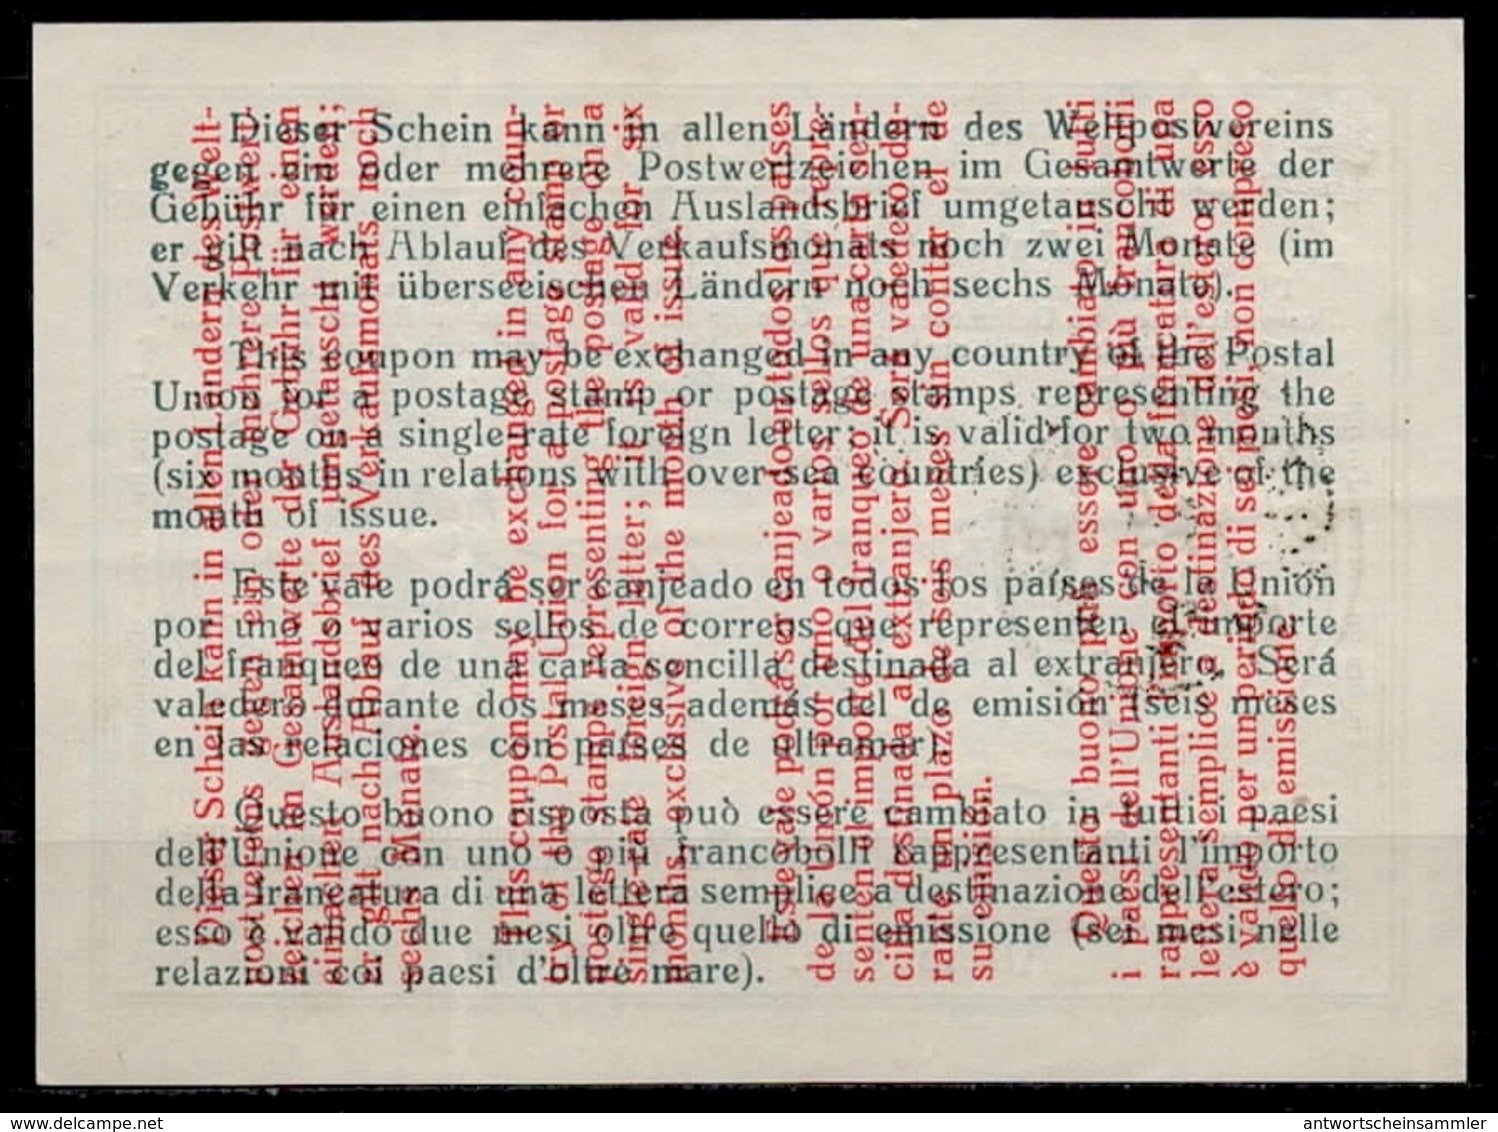 Dieser Schein kann in allen Ländern des Weltpostvereins
gegen ein oder mehrere Postwertzeichen im Gesamtwerte der
Gebühr für einen einfachen Auslandsbrief umgetauscht werden;
er gilt nach Ablauf des Verkaufsmonats noch zwei Monate (im
Verkehr mit überseeischen Ländern noch sechs Monate).
This coupon may be exchanged in any country of the Postal
Union for a postage stamp or postage stamps representing the
postage on a single-rate foreign letter; it is valid for two months
(six months in relations with over-sea countries) exclusive of the
month of issue.
Este vale podrá ser canjeado en todos los países de la Unión
por uno o varios sellos de correos que representen el importe
del franqueo de una carta sencilla destinada al extranjero. Será
valedero durante dos meses además del de emisión (seis meses
en las relaciones con países de ultramar).
Questo buono risposta può essere cambiato in tutti i paesi
dell'Unione con uno o più francobolli rappresentanti l'importo
della francatura di una lettera semplice a destinazione dell'estero;
esso è valido due mesi oltre quello di emissione (sei mesi nelle
relazioni coi paesi d'oltre mare).
Dieser Schein kann in allen Ländern des Welt-
postvereins gegen ein oder mehrere Postwert-
zeichen im Gesamtwerte der Gebühr für einen
einfachen Auslandsbrief umgetauscht werden;
er gilt nach Ablauf des Verkaufsmonats noch
sechs Monate.
This coupon may be exchanged in any coun-
try of the Postal Union for a postage stamp or
postage stamps representing the postage on a
single-rate foreign letter; it is valid for six
months exclusive of the month of issue.
Este vale podrá ser canjeado en todos los países
de la Unión por uno o varios sellos que repre-
senten el importe del franqueo de una carta sen-
cilla destinada al extranjero. Será valedero du-
rante un plazo de seis meses sin contar el de
su emisión.
Questo buono può essere cambiato in tutti
i paesi dell'Unione con uno o più francobolli
rappresentanti l'importo della francatura di una
lettera semplice a destinazione dell'estero; esso
è valido per un periodo di sei mesi, non compreso
quello di emissione
www.delcampe.net
antwortscheinsammler